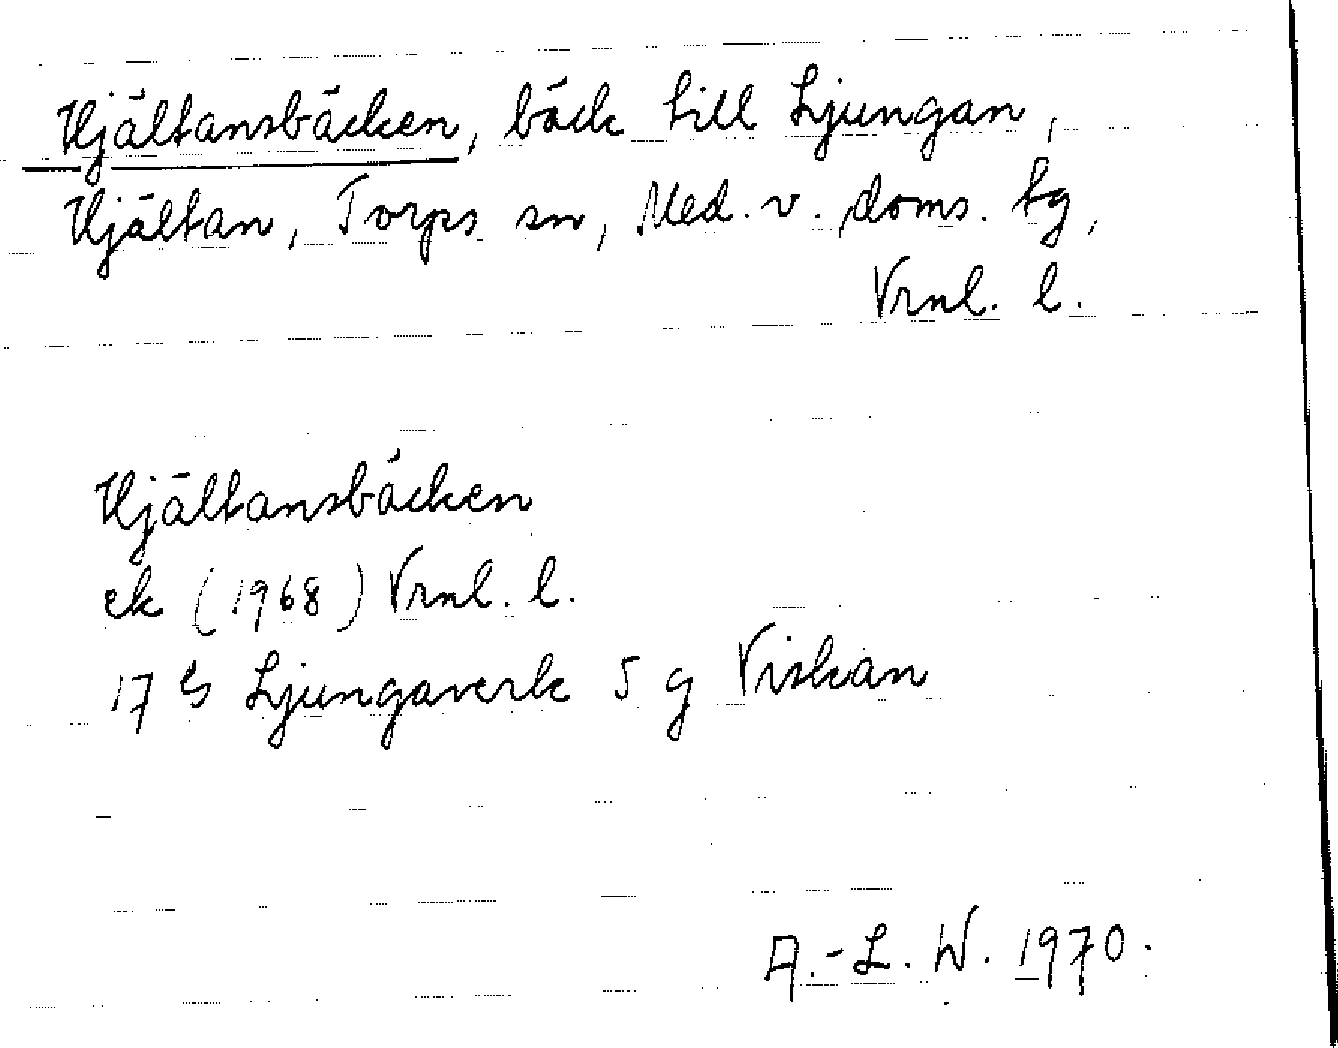 Hjältansbäcken, bäck till Ljungan,
Hjältan, Torps sn, Med. v. doms. tg,
Vrnl. l.
Hjältansbäcken
ek (1968) Vrnl. l.
17 Ljungaverk 5 g Viskan
A.-L. W. 1970.